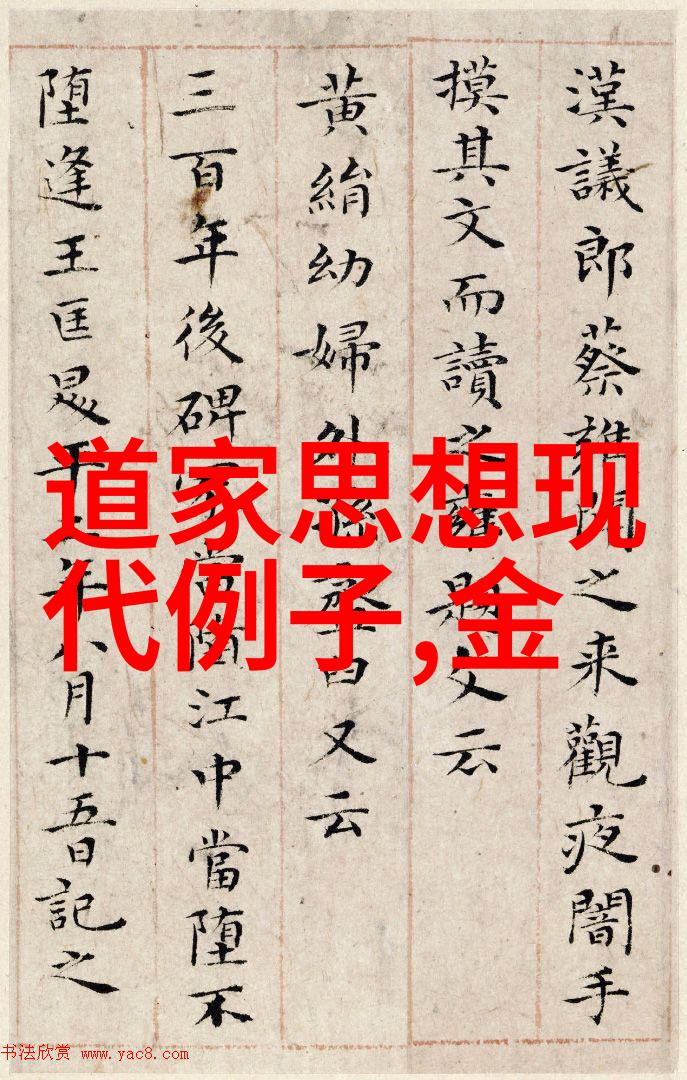 漢議郎蔡雍聞之来觀夜闇手
摸其文而讀之雍題文云
黄絹幼婦外孫臼又云
三百年後碑冢當江中當墮不
墮逢王匡平年八月十五日記之
道家思想现
代例子,金
书法欣赏 www.yac8.com